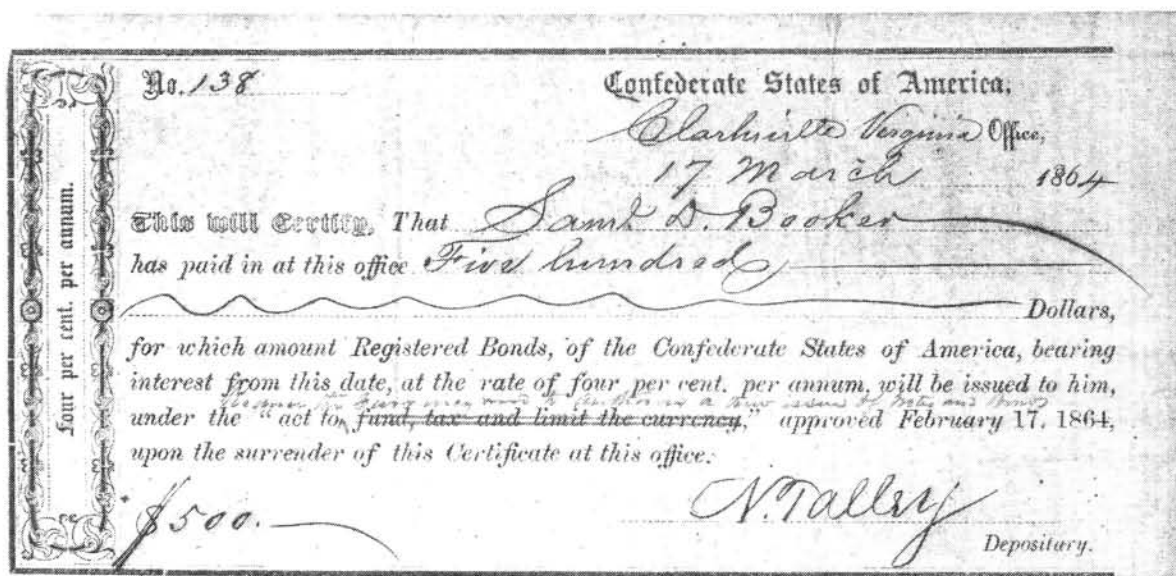 No. 138
Confederate States of America,
Clarksville Virginia Office,
17 March 1864
This will Certify, That Saml. D. Booker
has paid in at this office Five hundred
Dollars,
for which amount Registered Bonds, of the Confederate States of America, bearing
interest from this date, at the rate of four per cent. per annum, will be issued to him,
a new issue of notes and bonds
under the "act to fund, tax and limit the currency," approved February 17. 1864,
upon the surrender of this Certificate at this office.
$500.
N. Talley
Depositary.
Four per cent. per annum.